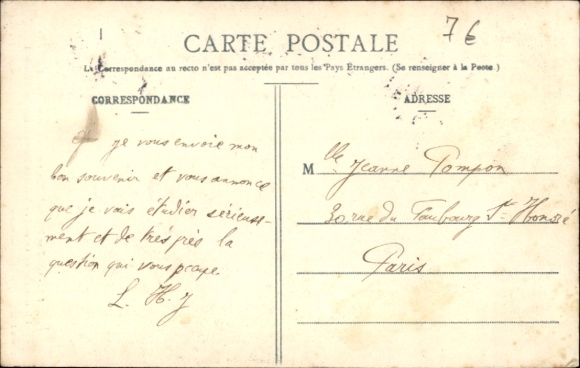 7€
CARTE POSTALE
La Correspondance au recto n'est pas acceptée par tous les Pays Étrangers. (Se renseigner à la Poste.)
CORRESPONDANCE
je vous envoie mon
bon souvenir et vous annonce
que je vais étudier sérieuse-
ment et de très près la
question qui vous
L. H. J
ADRESSE
Mlle Jeanne Pompon
30 rue du Faubourg St Honoré
Paris